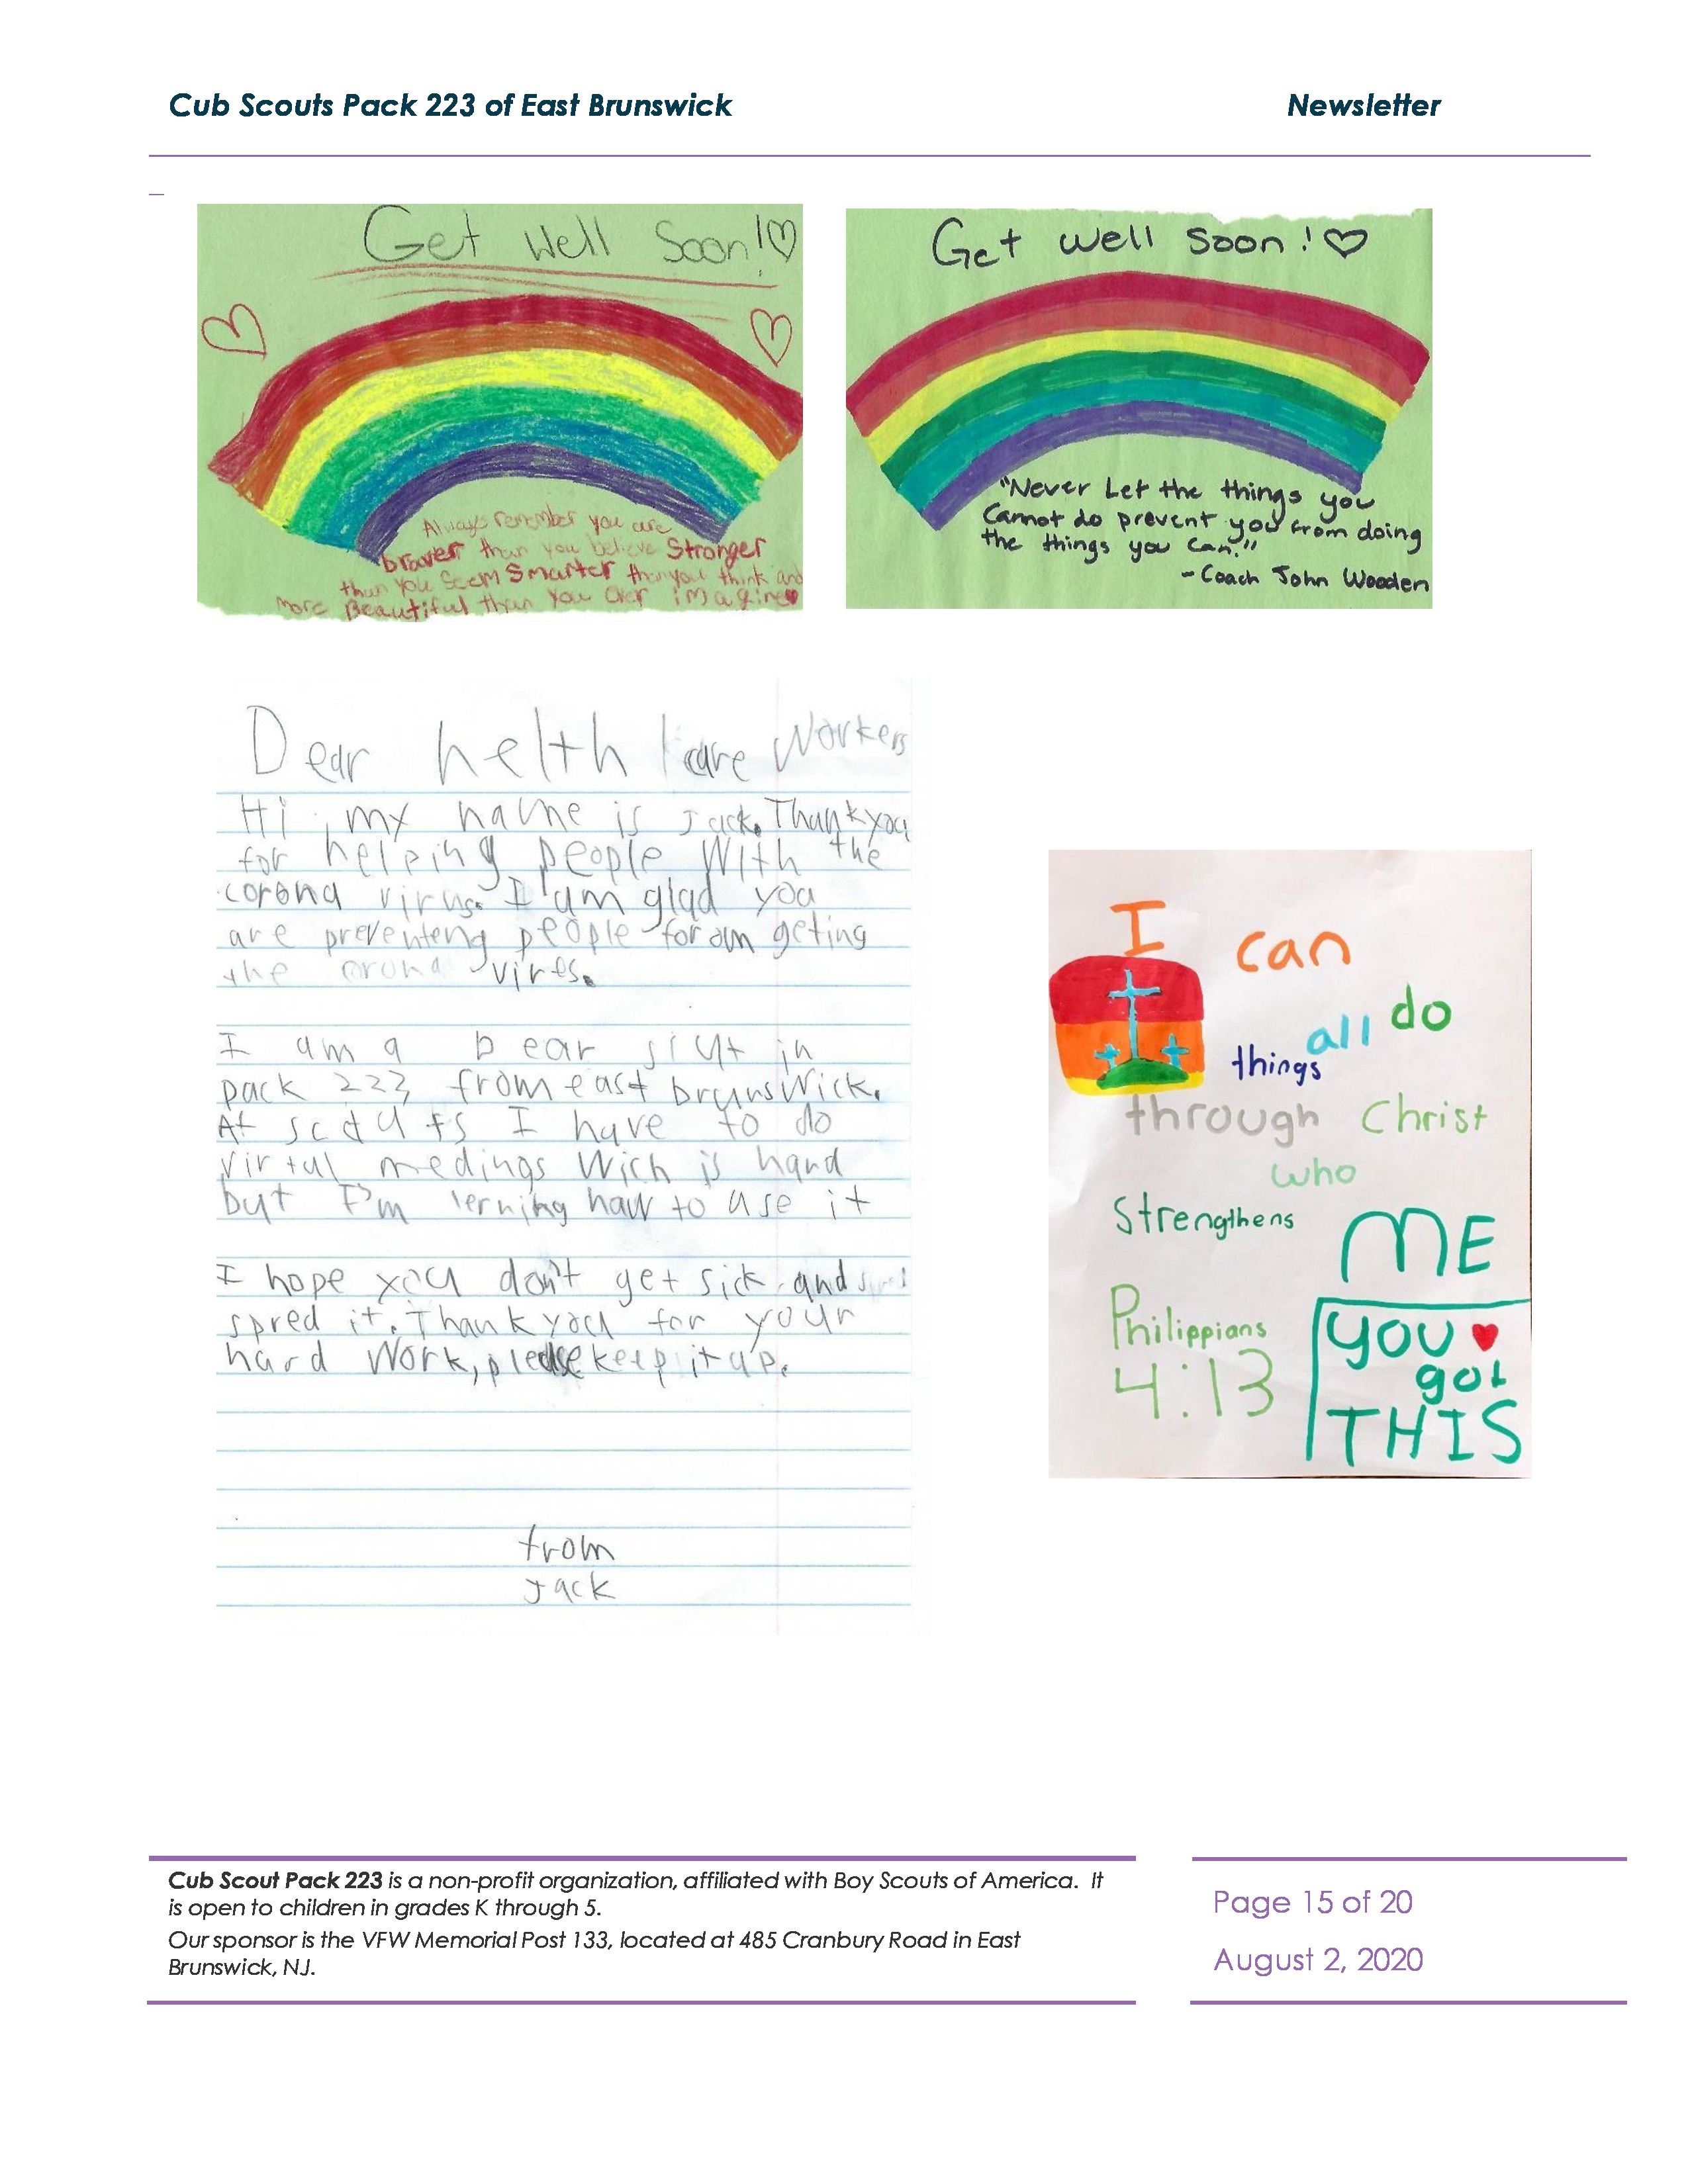 Cub Scouts Pack 223 of East Brunswick Newsletter
Get Well Soon!
Always remember you are
braver than you believe Stronger
than you seem Smarter than you think and
more Beautiful than you ever imagine
Get well soon!
"Never Let the things you
Cannot do prevent you from doing
the things you can."
-Coach John Wooden
Dear helth care Workers
Hi, my name is Jack. Thank you
for helping people With the
corona virus. I am glad you
are preventeng people foram geting
the orona vires.
I am a bear in
pack 223 from east brunswick.
At I have to do
virtul medings Wich is hard
but I'm lerning haw to use it
I hope you don't get sick and
spred it. Thank you for your
hard Work, please keep it up.
from
Jack
I can
do
all
things
through Christ
who
Strengthens
ME
Philippians
4:13
you
got
THIS
Cub Scout Pack 223 is a non-profit organization, affiliated with Boy Scouts of America. It
is open to children in grades K through 5.
Our sponsor is the VFW Memorial Post 133, located at 485 Cranbury Road in East
Brunswick, NJ.
Page 15 of 20
August 2, 2020